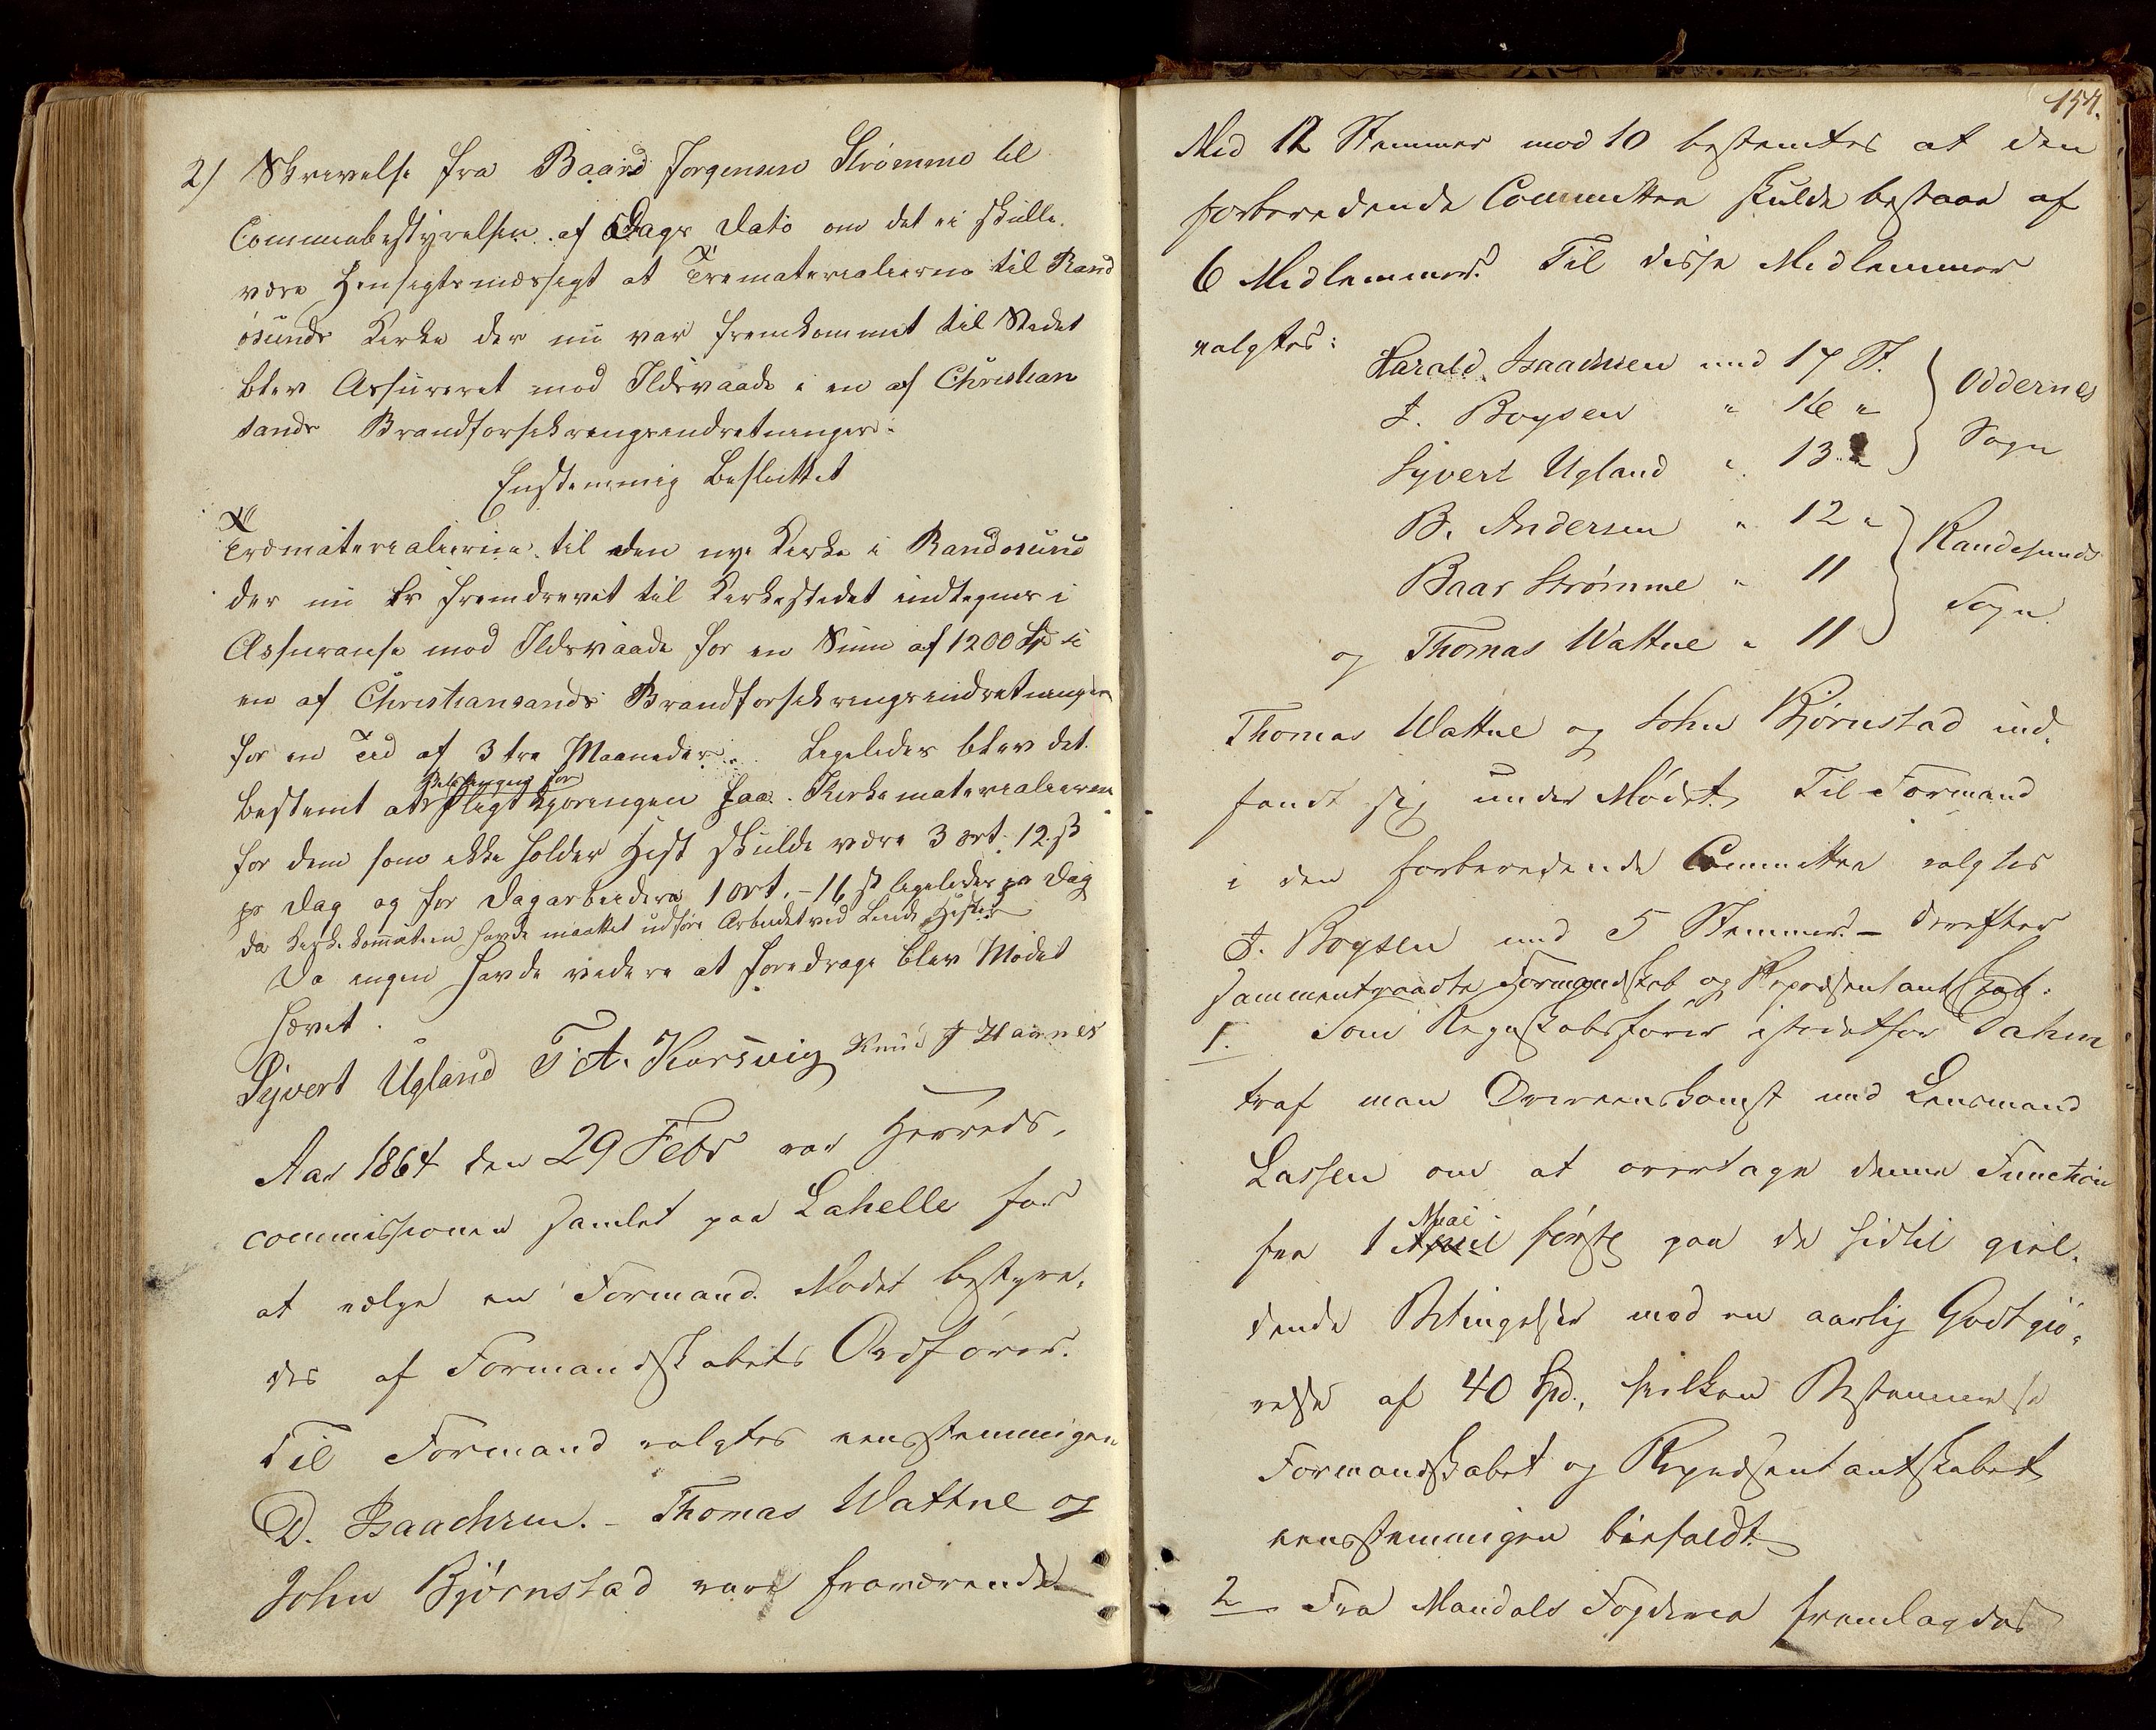 2) Skrivelse fra Baard Jørgensen Strømme til
Communebestyrelsen af Dags Dato om det ei skulle
være Hensigtsmæssigt at Trematerialierne til Rand
øsunds Kirke der nu var fremkommet til Stedet
blev Assureret mod Ildsvaade i en af Christian
sands Brandforsikringsindretninger.
Enstemmig Besluttet
Træmaterialierne til den nye Kirke i Randøsund
der nu er fremdrevet til Kirkestedet indtegnes i
Assuranse mod Ildsvaade for en Sum af 1200 Spd i
en af Christiansands Brandforsikringsindretninger
for en Tid af 3 tre Maaneder. Ligeledes blev det
Betalingen for
bestemt at Pligtkjøringen paa Kirkematerialierne
for dem som ikke holder Hest skulde være 3 ort. 12 ß
pr Dag og for Dagarbeidere 1 ort. - 16 ß ligeledes pr Dag
da Kirkekommiteen havde maattet udføre Arbeidet ved Leiede Heste
Da ingen havde videre at foredrage blev Mødet
hævet.
Syvert Ugland T. A. Korsvig Knud J Haanes
Aar 1864 den 29 Febr var Herreds-
commissionen samlet paa Lahelle for
at vælge en Formand. Mødet bestyre-
des af Formandskabets Ordfører.
Til Formand valgtes eensstemmigen
D. Isaachsen. - Thomas Wattne og
John Bjørnstad vare fraværende
154.
Med 12 Stemmer mod 10 bestemtes at den
forberedende Committee skulde bestaae af
6 Medlemmer. Til disse Medlemmer
valgtes:
Harald Isaachsen med 17 St.
J. Boysen " 16 "
Oddernes
Syvert Ugland " 13 "
Sogn
B. Andersen " 12 "
Randesunds
Baar Strømme " 11
Sogn
og Thomas Wattne " 11
Thomas Wattne og John Bjørnstad ind-
fandt sig under Mødet. Til Formand
i den forberedende Committee valgtes
J. Boysen med 5 Stemmer. - Derefter
sammentraadte Formandskab og Repræsentantskab.
1. Som Regnskabsfører istedetfor Dahm
traf man Overeenskomst med Lensmand
Lassen om at overtage denne Function
Mai
fra 1 April førstk paa de hidtil gjel-
dende Betingelser mod en aarlig Godtgjø-
relse af 40 Spd., hvilken Bestemmelse
Formandskabet og Repræsentantskabet
eensstemmigen bifaldt.
2 Fra Mandals Fogderie fremlagdes